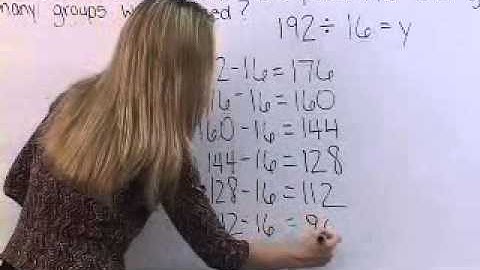 many groups w
192 ÷ 16 = y
2 - 16 = 176
16 - 16 = 160
160 - 16 = 144
144 - 16 = 128
128 - 16 = 112
12 - 16 = 9